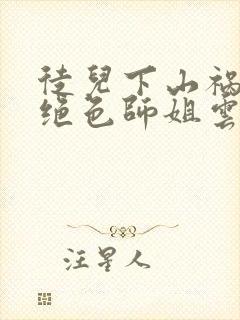 徒兒下山禍
絕色師姐雲
汪星人